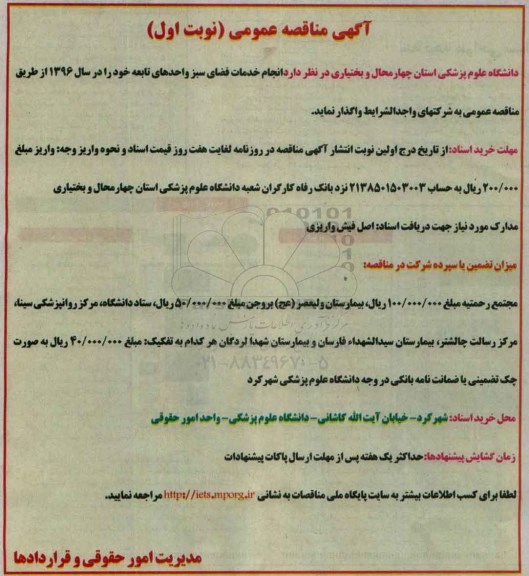 آگهی مناقصه عمومی (نوبت اول)
دانشگاه علوم پزشکی استان چهارمحال و بختیاری در نظر دارد انجام خدمات فضای سبز واحدهای تابعه خود را در سال ۱۳۹۶ از طریق
مناقصه عمومی به شرکتهای واجدالشرایط واگذار نماید.
مهلت خرید اسناد: از تاریخ درج اولین نوبت انتشار آگهی مناقصه در روزنامه لغایت هفت روز قیمت اسناد و نحوه واریز وجه: واریز مبلغ
۲۰۰/۰۰۰ ریال به حساب ۲۱۳۸۵۰۱۵۰۳۰۰۳ نزد بانک رفاه کارگران شعبه دانشگاه علوم پزشکی استان چهارمحال و بختیاری
مدارک مورد نیاز جهت دریافت اسناد: اصل فیش واریزی
میزان تضمین یا سپرده شرکت در مناقصه:
مجتمع رحمتیه مبلغ ۱۰۰/۰۰۰/۰۰۰ ریال، بیمارستان ولیعصر (عج) بروجن مبلغ ۵۰/۰۰۰/۰۰۰ ریال، ستاد دانشگاه، مرکز روانپزشکی سینا،
مرکز رسالت چالشتر، بیمارستان سیدالشهداء فارسان و بیمارستان شهدا لردگان هر کدام به تفکیک: مبلغ ۴۰/۰۰۰/۰۰۰ ریال به صورت
۰۲۱-۸۸۳۴۹۶۷۰-۵
چک تضمینی یا ضمانت نامه بانکی در وجه دانشگاه علوم پزشکی شهرکرد
محل خرید اسناد: شهرکرد - خیابان آیت الله کاشانی - دانشگاه علوم پزشکی - واحد امور حقوقی
زمان گشایش پیشنهادها: حداکثر یک هفته پس از مهلت ارسال پاکات پیشنهادات
لطفا برای کسب اطلاعات بیشتر به سایت پایگاه ملی مناقصات به نشانی http://iets.mporg.ir مراجعه نمایید.
مدیریت امور حقوقی و قراردادها